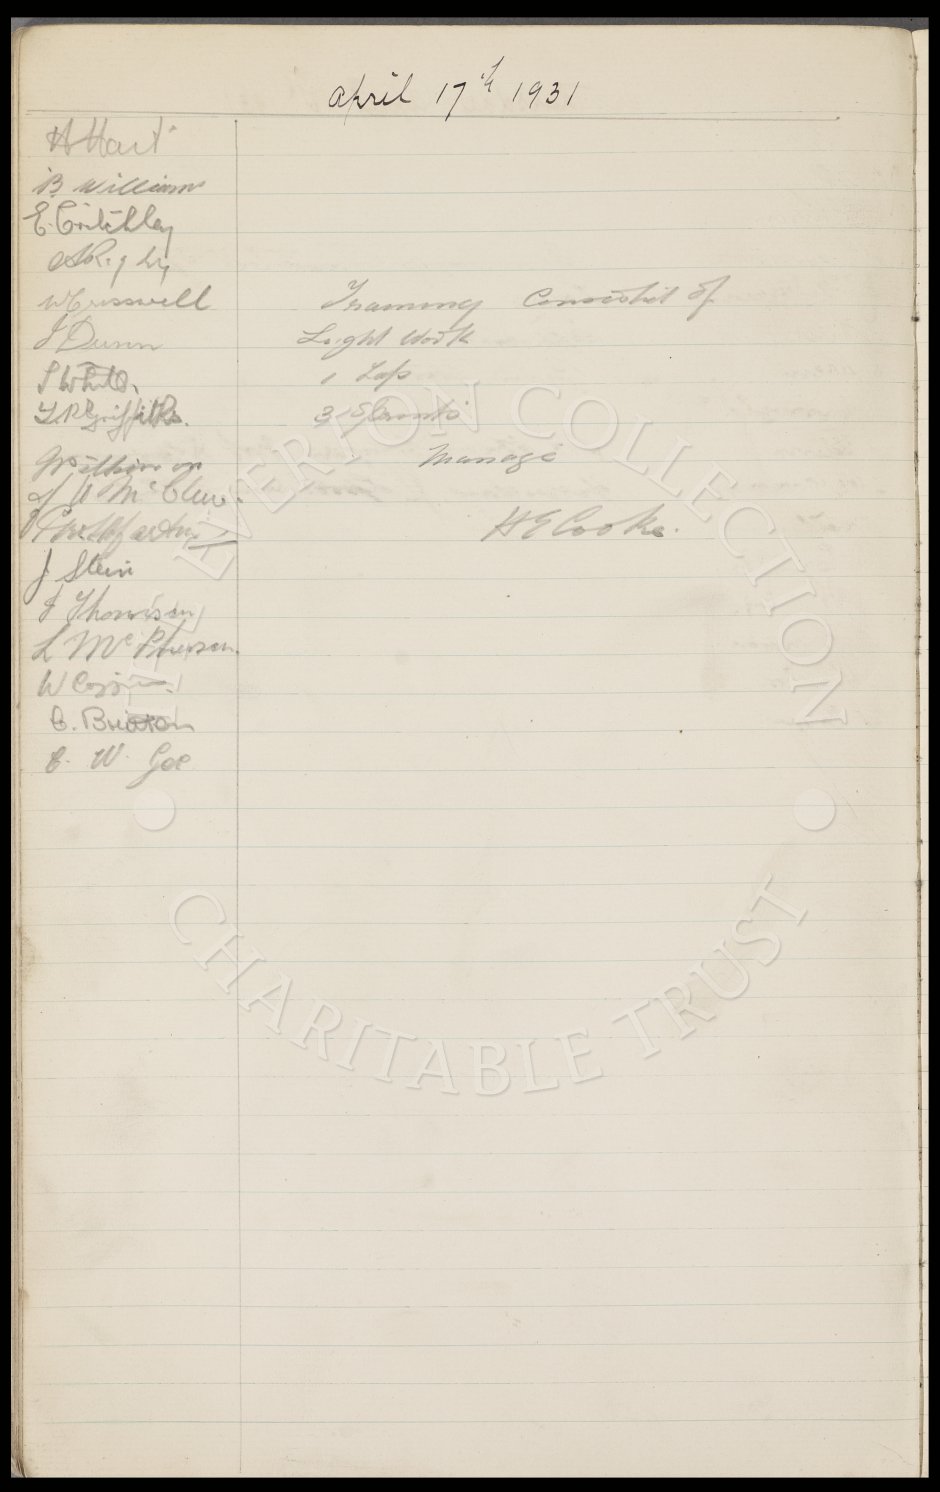 April 17th 1931
H Hart
B Williams
E. Critchley
A Rigby
W Cresswell
J Dunn
S White.
T. P. Griffiths.
Wilkinson
A McClure.
J Stein
J Thomson
L McPherson.
W Coggins.
C. Britton
C. W. Gee
Training Consistit of
Light Work
1 Lap
3 Sprints
Massage
H E Cooke.
THE EVERTON COLLECTION
CHARITABLE TRUST